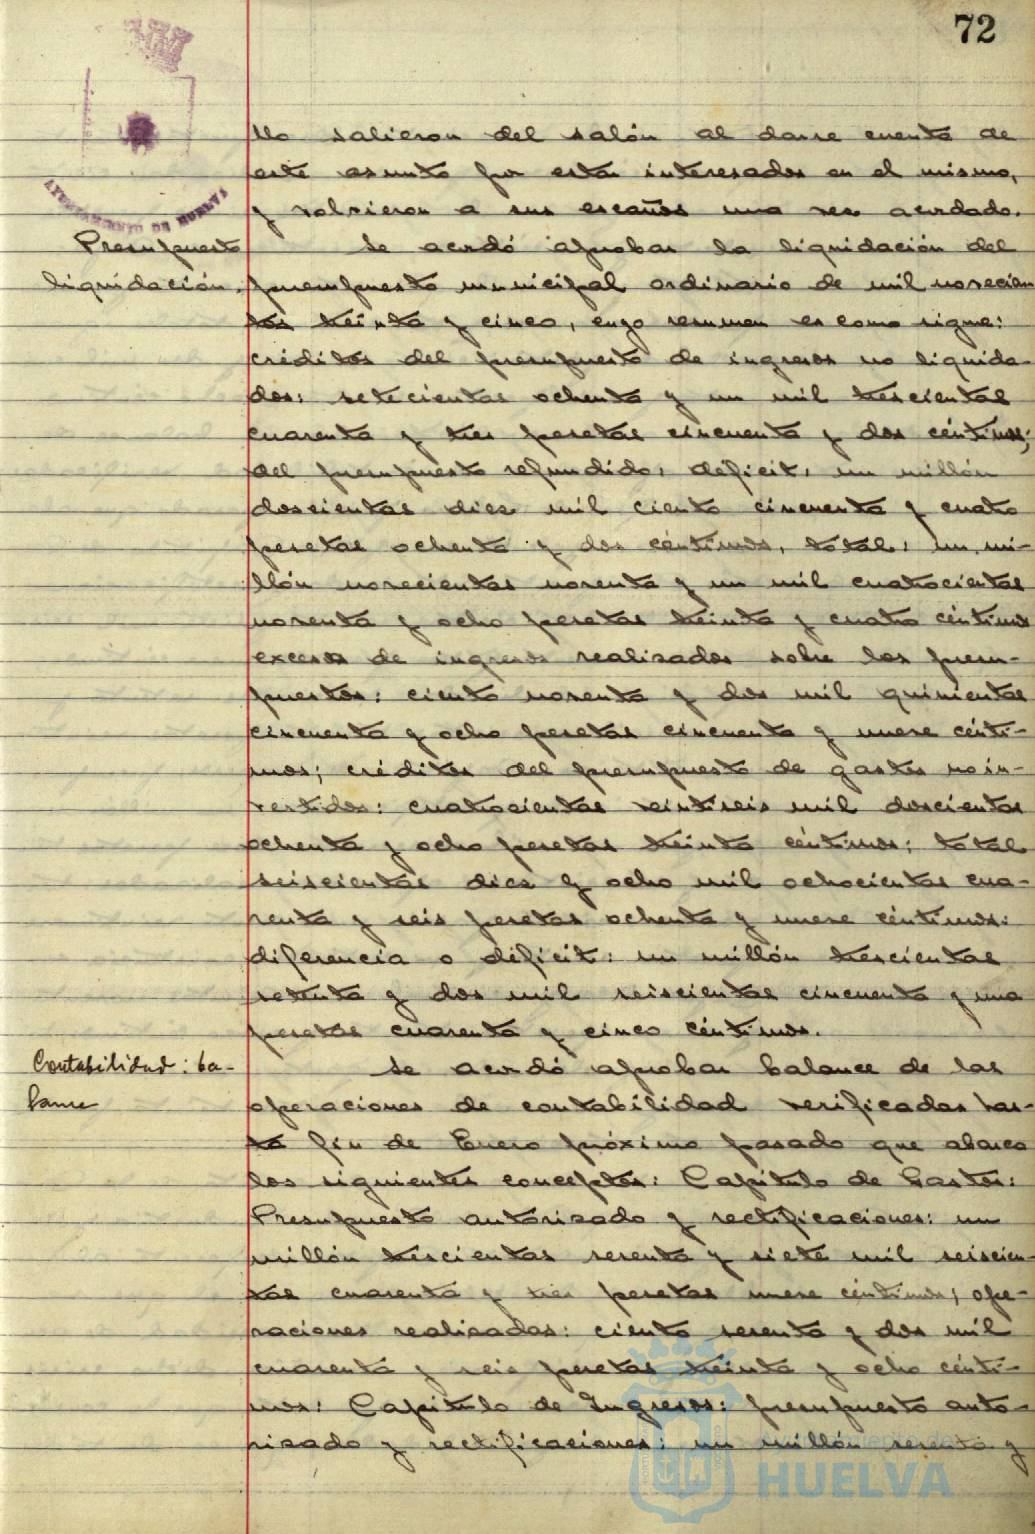 72
AYUNTAMIENTO DE HUELVA
llo salieron del salón al darse cuenta de
este asunto por estar interesados en el mismo,
y volvieron a sus escaños una vez acordado.
Presupuesto
liquidación.
Se acordó aprobar la liquidación del
presupuesto municipal ordinario de mil novecien
tos treinta y cinco, cuyo resumen es como sigue:
créditos del presupuesto de ingresos no liquida-
dos: setecientas ochenta y un mil trescientas
cuarenta y tres pesetas cincuenta y dos céntimos;
del presupuesto refundido: déficit: un millón
doscientas diez mil ciento cincuenta y cuatro
pesetas ochenta y dos céntimos, total: un mi-
llón novecientas noventa y un mil cuatrocientas
noventa y ocho pesetas treinta y cuatro céntimos
exceso de ingresos realizados sobre los presu-
puestos: ciento noventa y dos mil quinientas
cincuenta y ocho pesetas cincuenta y nueve cénti-
mos; créditos del presupuesto de gastos no in-
vertidos: cuatrocientas veintiseis mil doscientas
ochenta y ocho pesetas treinta céntimos; total
seiscientas diez y ocho mil ochocientas cua-
renta y seis pesetas ochenta y nueve céntimos:
diferencia o déficit: un millón trescientas
setenta y dos mil seiscientas cincuenta y una
pesetas cuarenta y cinco céntimos.
Contabilidad: ba-
lance
Se acordó aprobar balance de las
operaciones de contabilidad verificadas has-
ta fin de Enero próximo pasado que abarca
los siguientes conceptos: Capítulo de Gastos:
Presupuesto autorizado y rectificaciones: un
millón trescientas sesenta y siete mil seiscien-
tas cuarenta y tres pesetas nueve céntimos; ope-
raciones realizadas: ciento sesenta y dos mil
cuarenta y seis pesetas treinta y ocho cénti-
mos: Capítulo de Ingresos: presupuesto auto-
rizado y rectificaciones: un millón sesenta y
Ayuntamiento de
HUELVA